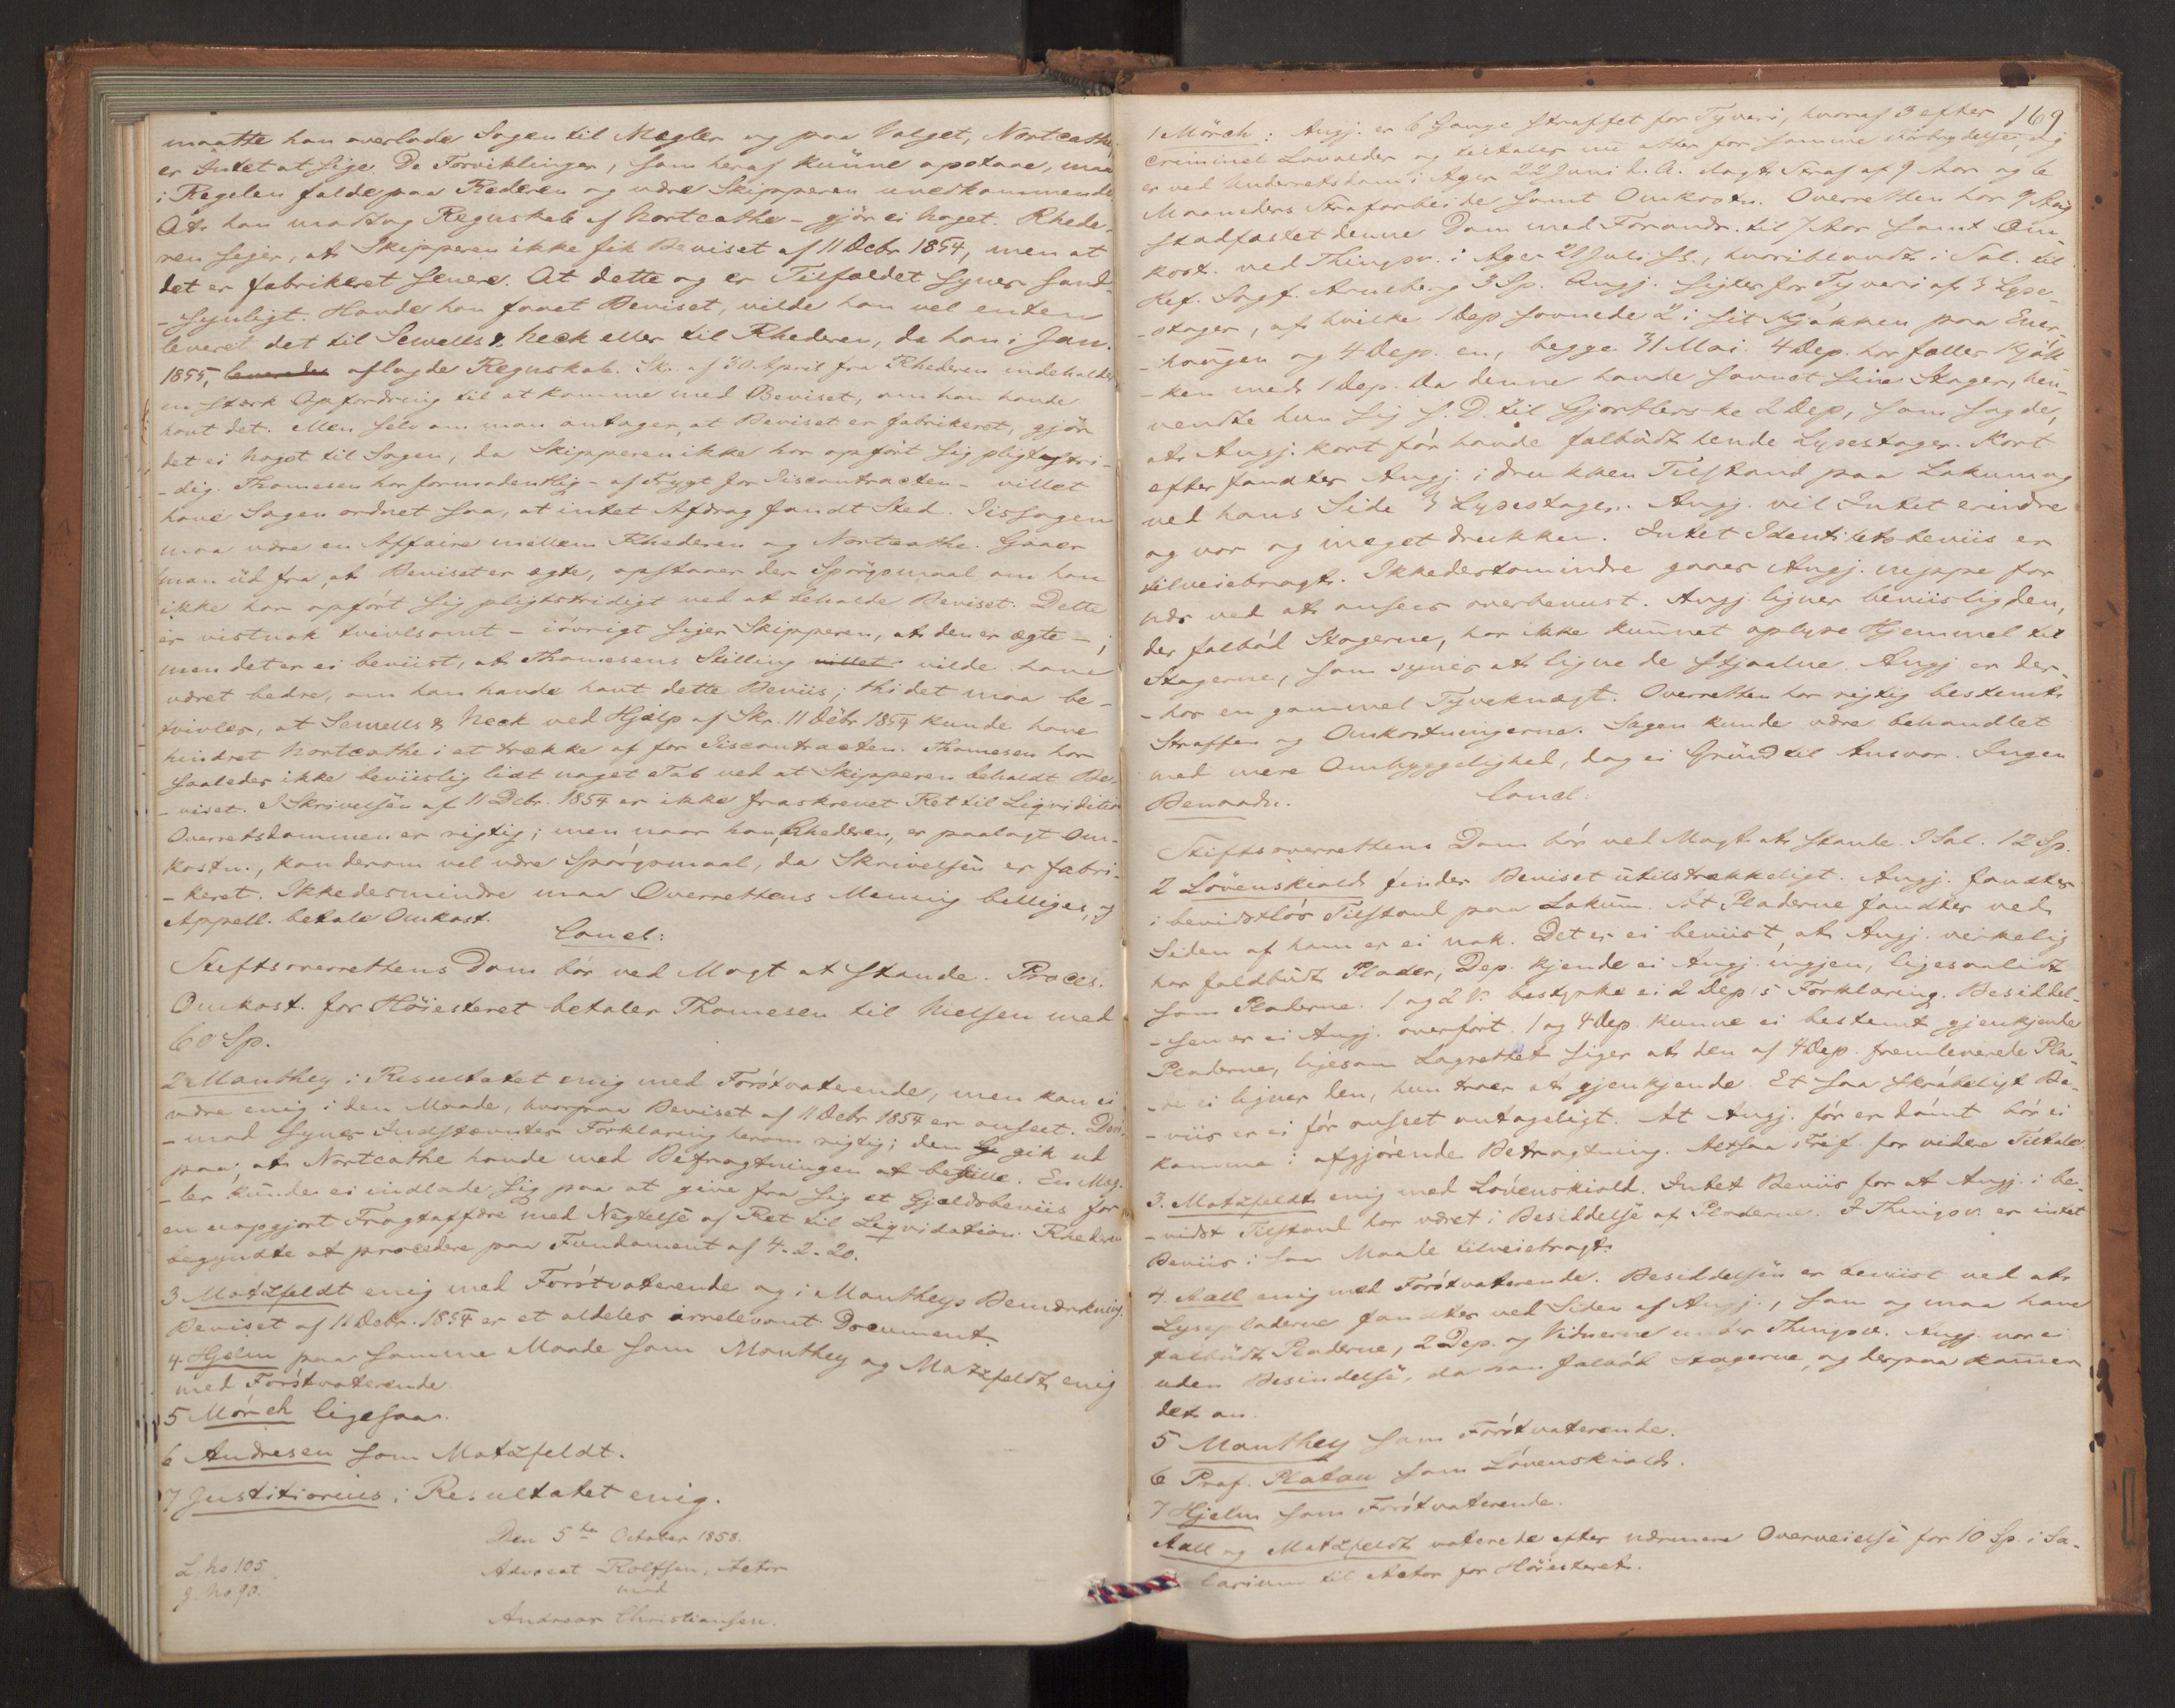 maatte han overlade Sagen til Mægler og paa Valget, Nortcathe,
er Intet at sige. De Forviklinger, som heraf kunne opstaae, maa
i Regelen falde paa Rederen og være Skipperen uvedkommende
At han modtog Regnskab af Nortcathe – gjör ei Noget. Rhede-
ren siger, at Skipperen ikke fik Beviset af 11 Decbr 1854, men at
det er fabrikeret senere. At dette og er Tilfældet synes sand-
-synligt. Havde han faaet Beviset, vilde han vel enten
leveret det til Sewells & Neck eller til Rhederen, da han i Jan.
1855, leverede aflagde Regnskab. Sk. af 30 April fra Rhederen indeholder
en stærk Opfordring til at komme med Beviset, om han havde
havt det. Men selv om man antager, at Beviset er fabrikeret, gjör
det ei Noget til Sagen, da Skipperen ikke har opfört sig pligtstri-
-dig. Thomesen har formodentlig – af Frygt for Iiscontracten – villet
have Sagen ordnet saa, at intet Afdrag fandt Sted. Iissagen
maa være en Affaire mellem Rhederen og Nortcathe. Gaaer
man ud fra, at Beviset er ægte, opstaaer der Spörgsmaal om han
ikke har opfört sig pligtstridigt ved at beholde Beviset. Dette
er vistnok tvivlsomt – iövrigt siger Skipperen, at den er ægte – ;
men det er ei beviist, at Thomesens Stilling villet vilde have
været bedre, om han havde havt dette Beviis; thi det maa be-
tvivles, at Sewells & Neck ved Hjælp af Skr. 11 Decbr 1854 kunde have
hindret Nortcathe i at trække af for Iiscontracten. Thomesen har
saaledes ikke beviislig lidt noget Tab ved at Skipperen beholdt Be-
-viset. I Skrivelsen af 11 Decbr. 1854 er ikke fraskrevet Ret til Liqvidation
Overretsdommen er rigtig; men naar han, Rhederen, er paalagt Om-
kostn., kan derom vel være Spörgsmaal, da Skrivelsen er fabri-
-keret. Ikkedesmindre maa Overrettens Mening billiges, og
Appell. betale Omkost.
Concl:
Stiftsoverrettens Dom bör ved Magt at stande. Proces.
Omkost. for Höiesteret betaler Thomesen til Nielsen med
60 Sp.
2 Manthey i Resultatet enig med Förstvoterende, men kan ei
være enig i den Maade, hvorpaa Beviset af 11 Decbr 1854 er anseet. Der-
-mod synes Indstævntes Forklaring herom rigtig; den gik ud
paa, at Nortcathe havde med Befragtningen at bestille. En Mæg-
-ler kunde ei indlade sig paa at give fra sig et Gjældsbeviis for
en uopgjort Fragtaffære med Negtelse af Ret til Liqvidation. Rhederen
begyndte at procedere paa Fundament af 4-2-20.
3 Motzfeldt enig med Förstvoterende og i Mantheys Bemærkning.
Beviset af 11 Decbr. 1854 er et aldeles irrelevant Document.
4 Hjelm paa samme Maade som Manthey og Motzfeldt enig
med Förstvoterende.
5 Mörch ligesaa.
6 Andresen som Motzfeldt.
7 Justitiarius i Resultatet enig.
Den 5te October 1858.
L. No 105
J. No 90.
Advocat Rolfsen, Actor
mod
Andreas Christiansen.
169
1 Mörch: Angj. er 6 Gange straffet for Tyveri, hvoraf 3 efter
criminel Lavalder og tiltales nu atter for samme Forbrydelse, og
er ved Underretsdom i Ager 22 Juni d. A. idögt Straf af 9 Aar og 6
Maaneders Strafarbeide samt Omkostn. Overretten har 9 Aug
stadfæstet denne Dom med Forandr. til 7 Aar samt Om-
kost. ved Thingsv. i Ager 21 Juli sl., hvoriblandt i Sal. til
Kef. Sagf. Arneberg 3 Sp. Angj. sigtes for Tyveri af 3 Lyse-
-stager, af hvilke 1 Dep savnede 2 i sit Kjökken paa Ener-
-haugen og 4 Dep. en, begge 31 Mai. 4 Dep. har fælles Kjök-
-ken med 1 Dep. Da denne havde savnet sine Stager, hen-
vendte hun sig s. D. til Gjörtlerske 2 Dep, som sagde,
at Angj. kort för havde falbudt hende Lysestager. Kort
efter fandtes Angj. i drukken Tilstand paa Lakum og
ved hans Side 3 Lysestager. Angj. vil Intet erindre
og var og meget drukken. Intet Identitetsbeviis er
tilveiebragt. Ikkedestomindre gaaer Angj. neppe for
nær ved at ansees overbevist. Angj. ligner beviislig den,
der falböd Stagerne, har ikke kunnet oplyse Hjemmel til
Stagerne, som synes at ligne de stjaalne. Angj er der-
-hos en gammel Tyveknægt. Overretten har rigtig bestemt
Straffen og Omkostningerne. Sagen kunde være behandlet
med mere Omhyggelighed, dog ei Grund til Ansvar. Ingen
Benaadn.
Concl:
Stiftsoverrettens Dom bör ved Magt at stande. I Sal. 12 Sp.
2 Lövenskiold finder Beviset utilstrækkeligt. Angj. fandtes
i bevidstlös Tilstand paa Lakum. At Pladerne fandtes ved
Siden af ham er ei nok. Det er ei beviist, at Angj. virkelig
har faldbudt Plader; Dep. kjende ei Angj. igjen, ligesaalidt
som Pladerne. 1 og 2 V. bestyrke ei 2 Dep's Forklaring. Besiddel-
-sen er ei Angj. overfört. 1 og 4 Dep. kunne ei bestemt gjenkjende
Pladerne, ligesom Lagrettet siger at den af 4 Dep. fremleverede Pla-
-de ei ligner den, hun troer at gjenkjende. Et saa skröbeligt Be-
-viis er ei för anseet antageligt. At Angj. för er dömt bör ei
komme i afgjörende Betragtning. Altsaa Frif. for videre Tiltale.
3. Motzfeldt enig med Lövenskiold. Intet Beviis for at Angj. i be-
-vidst Tilstand har været i Besiddelse af Pladerne. I Thingsv. er intet
Beviis i saa Maade tilveiebragt.
4. Aall enig med Förstvoterende. Besiddelsen er beviist ved at
Lysepladerne fandtes ved Siden af Angj., som og maa have
falbudt Pladerne, 2 Dep. og Vidnerne under Thingsv. Angj. var ei
uden Besindelse, da han falböd Stagerne, og derpaa kommer
det an.
5 Manthey som Förstvoterende.
6 Prof. Platou som Lövenskiold.
7 Hjelm som Förstvoterende.
Aall og Motzfeldt voterede efter nærmere Overveielse for 10 Sp. i Sa-
larium til Actor for Höiesteret.